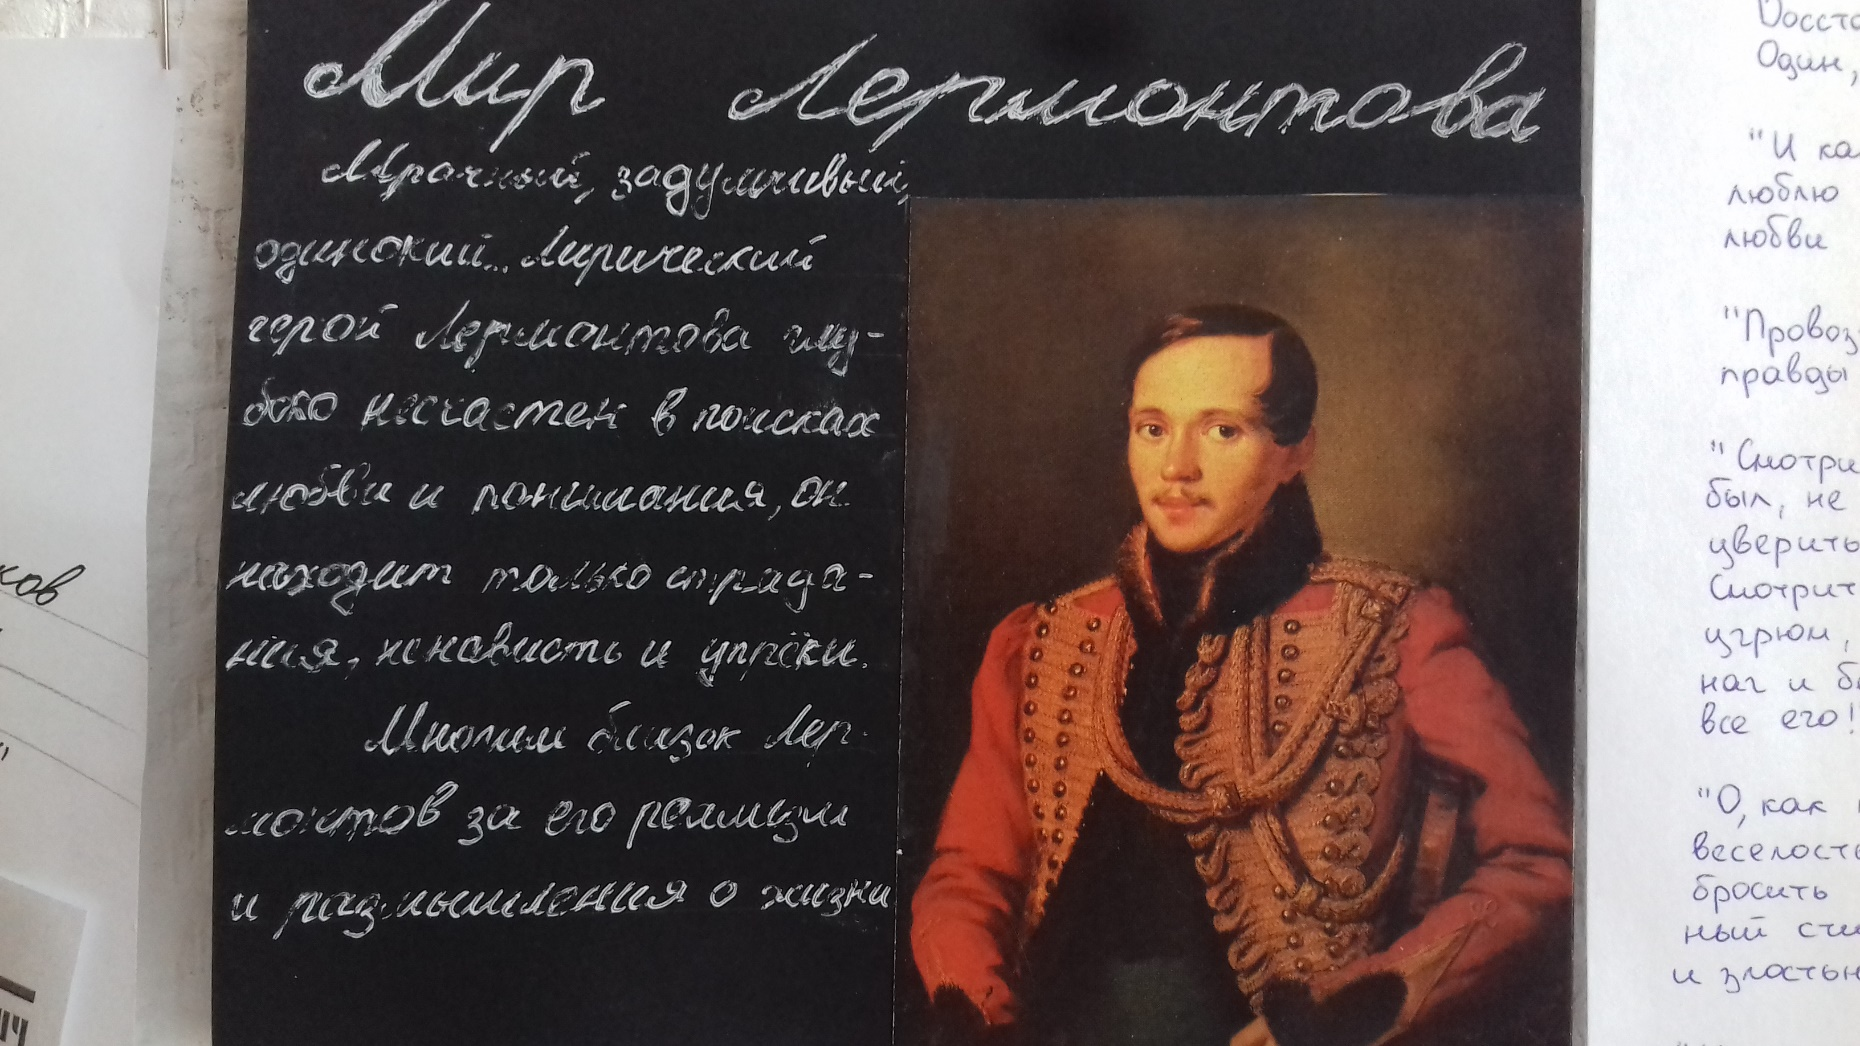 Мир Лермонтова
Мрачный, задумчивый,
одинокий... Лирический
герой Лермонтова глу-
боко несчастен в поисках
любви и понимания, он
находит только страда-
ния, ненависть и упрёки.
Многим близок Лер-
монтов за его реализм
и размышления о жизни
ков
Восста
Один,
"И ка
люблю
любви
"Провоз
правды
"Смотри
был, не
уверить
Смотрит
угрюм,
наг и б
все его!
"О, как
веселость
бросить
ный сти
и злостью